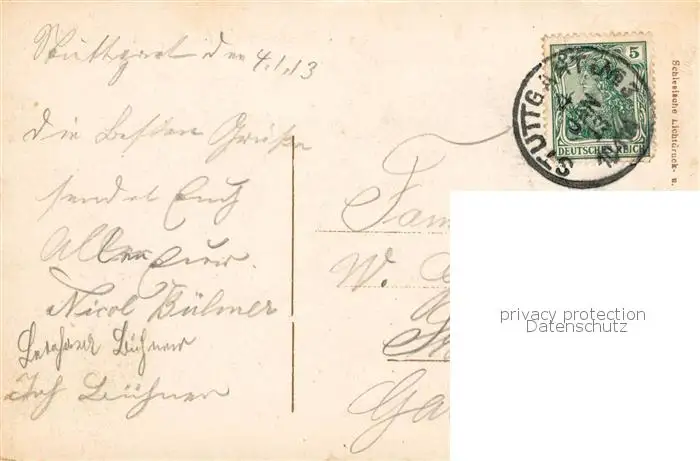 Stuttgart den 4.1.13
Die besten Grüße
sendet Euch
Allen Euer
Nicol Bühner
Bühner
Joh Bühner
5
DEUTSCHES REICH
STUTTGART No 3
4
JAN
13
Schlesische Lichtdruck- u.
Fam
W.
Ga
privacy protection
Datenschutz